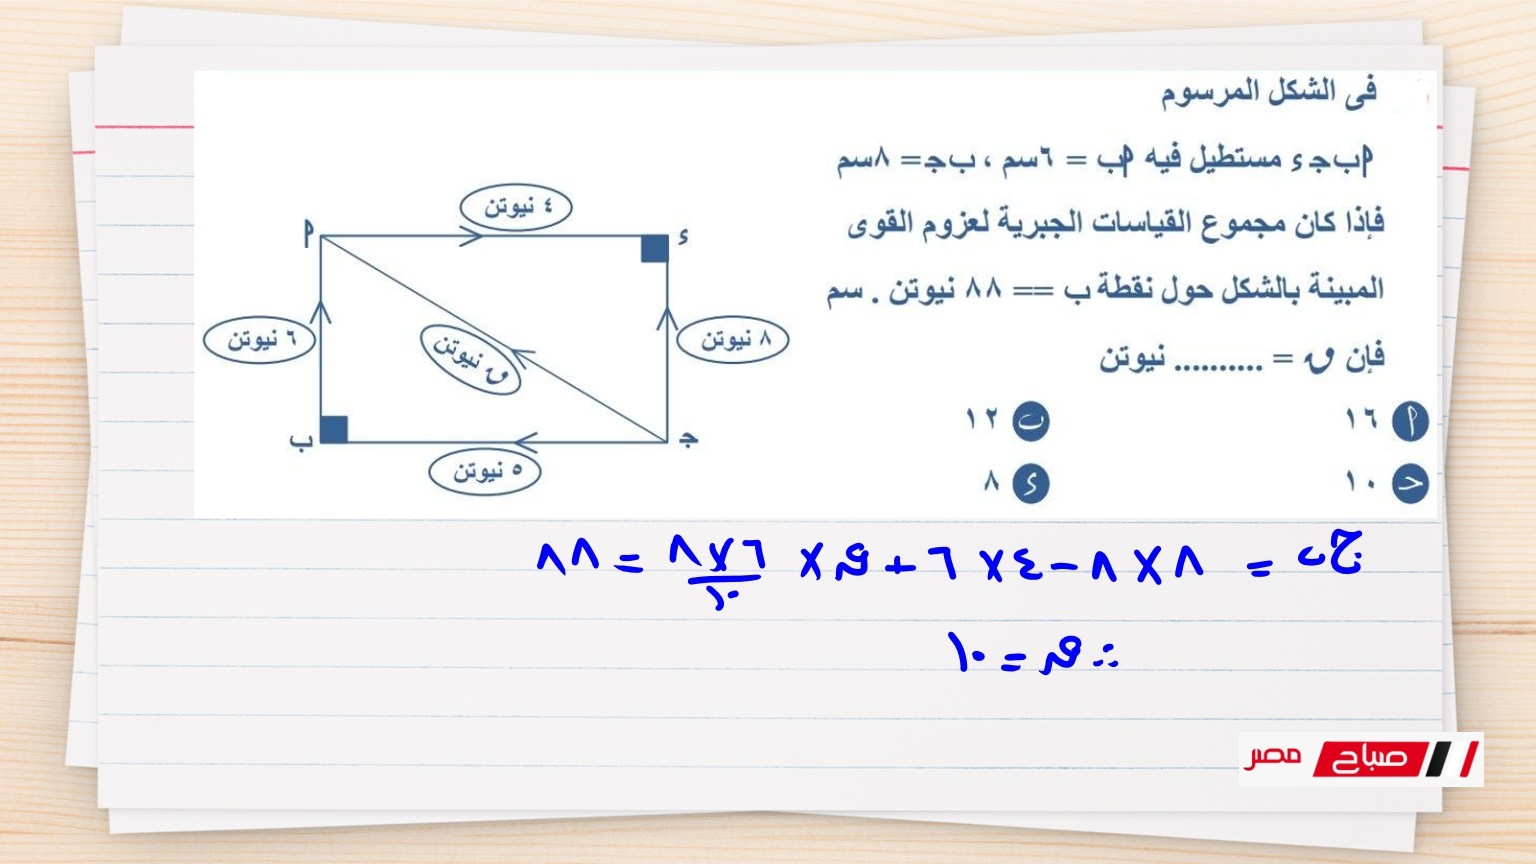 فى الشكل المرسوم
أ ب ج ء مستطيل فيه أ ب = ٦سم ، ب ج = ٨سم
فإذا كان مجموع القياسات الجبرية لعزوم القوى
المبينة بالشكل حول نقطة ب == ٨٨ نيوتن . سم
فإن ق = .......... نيوتن
أ ١٦
ب ١٢
ج ١٠
ء ٨
٤ نيوتن
أ
ء
٦ نيوتن
ق نيوتن
٨ نيوتن
ب
ج
٥ نيوتن
ج ب = ٨ × ٨ - ٤ × ٦ + ق × ٦×٨/١٠ = ٨٨
∴ ق = ١٠
صباح مصر